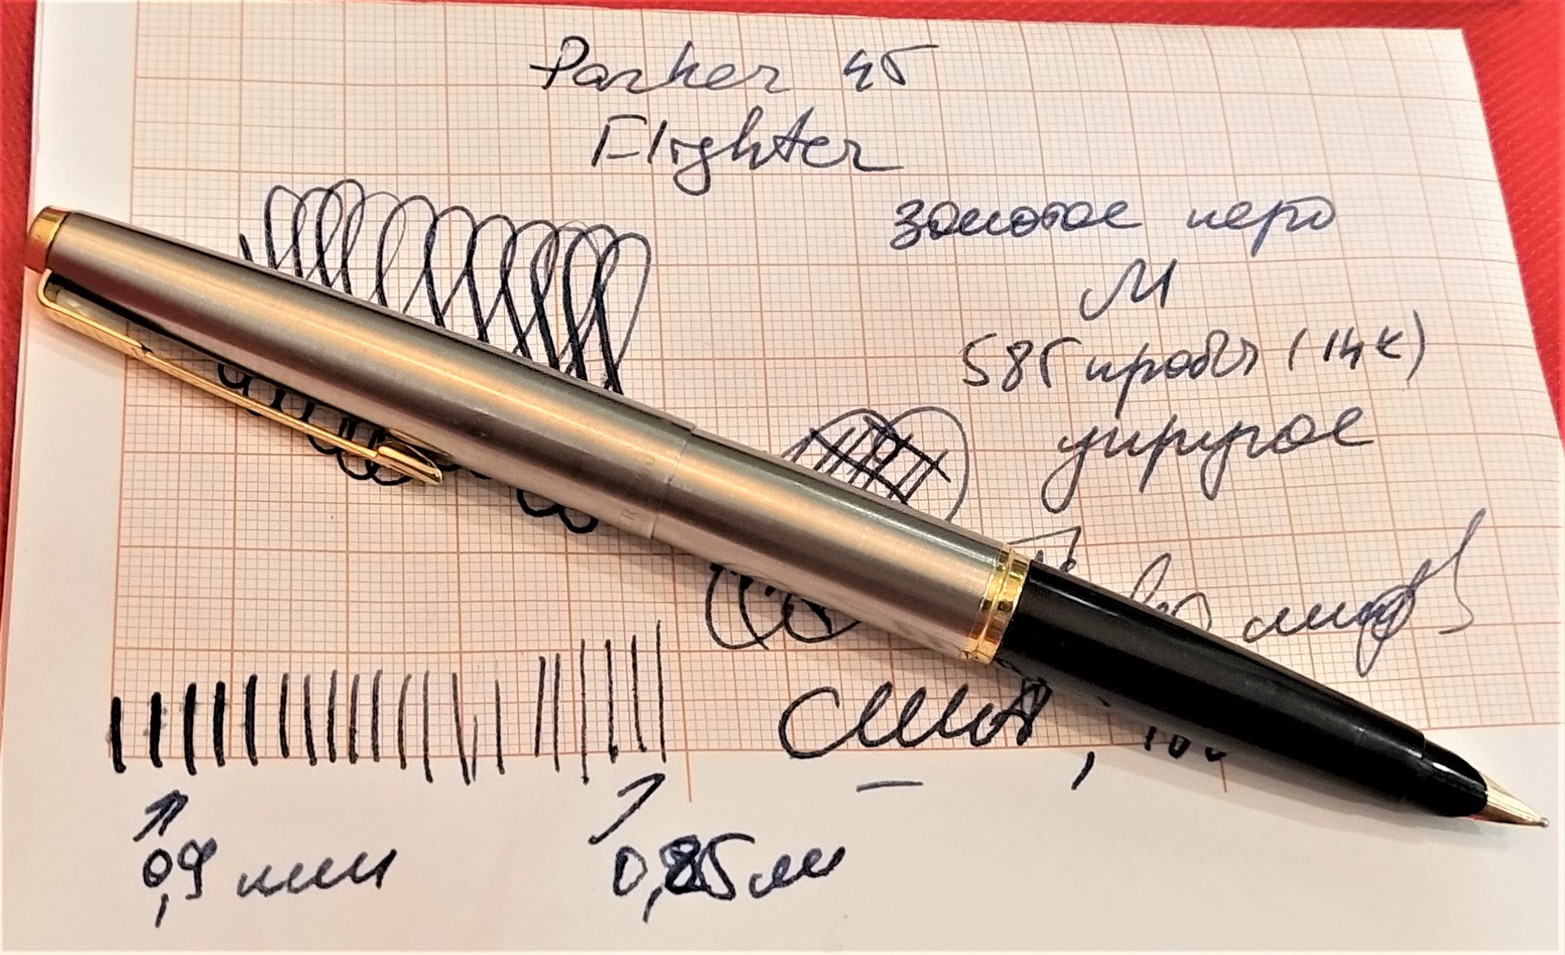 Parker 45
Flighter
золотое перо
М
585 пробы (14к)
упругое
0,9 мм
0,25 мм